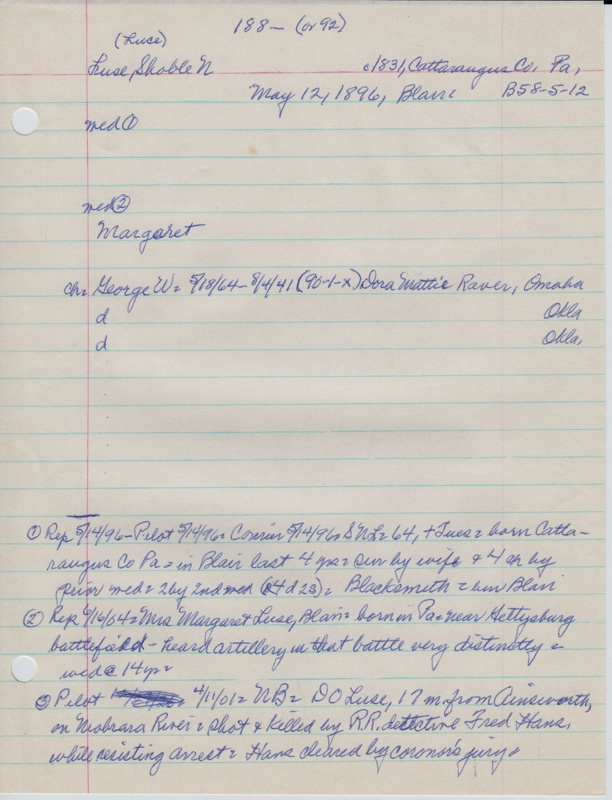 188- (or 92)
(Luse)
Fuse, Shoble N c1831, Cattaraugus Co. Pa,
May 12, 1896, Blair B58-5-12
med ①
med ②
Margaret
ch= George W= 5/18/64-8/4/41 (90-1-x) Dora Mattie Raver, Omaha
d Okla
d Okla,
① Rep 5/14/96-Pilot 5/14/96= Courier 5/14/96= SNL= 64, + Tues= born Catta-
raugus Co Pa= in Blair last 4 yrs= sur by wife & 4 ch by
prior med= 2 by 2nd med (4 d 2s)= Blacksmith= bur Blair
② Rep 9/16/04= Mrs Margaret Luse, Blair= born in Pa= near Gettysburg
battlefield- heard artillery in that battle very distinctly=
wed @ 14 yr=
③ Pilot 4/11/01= NB= D O Luse, 17 m. from Ainsworth,
on Niobrara River= shot & killed by R.R. detective Fred Hans,
while resisting arrest= Hans cleared by coronor's jury=